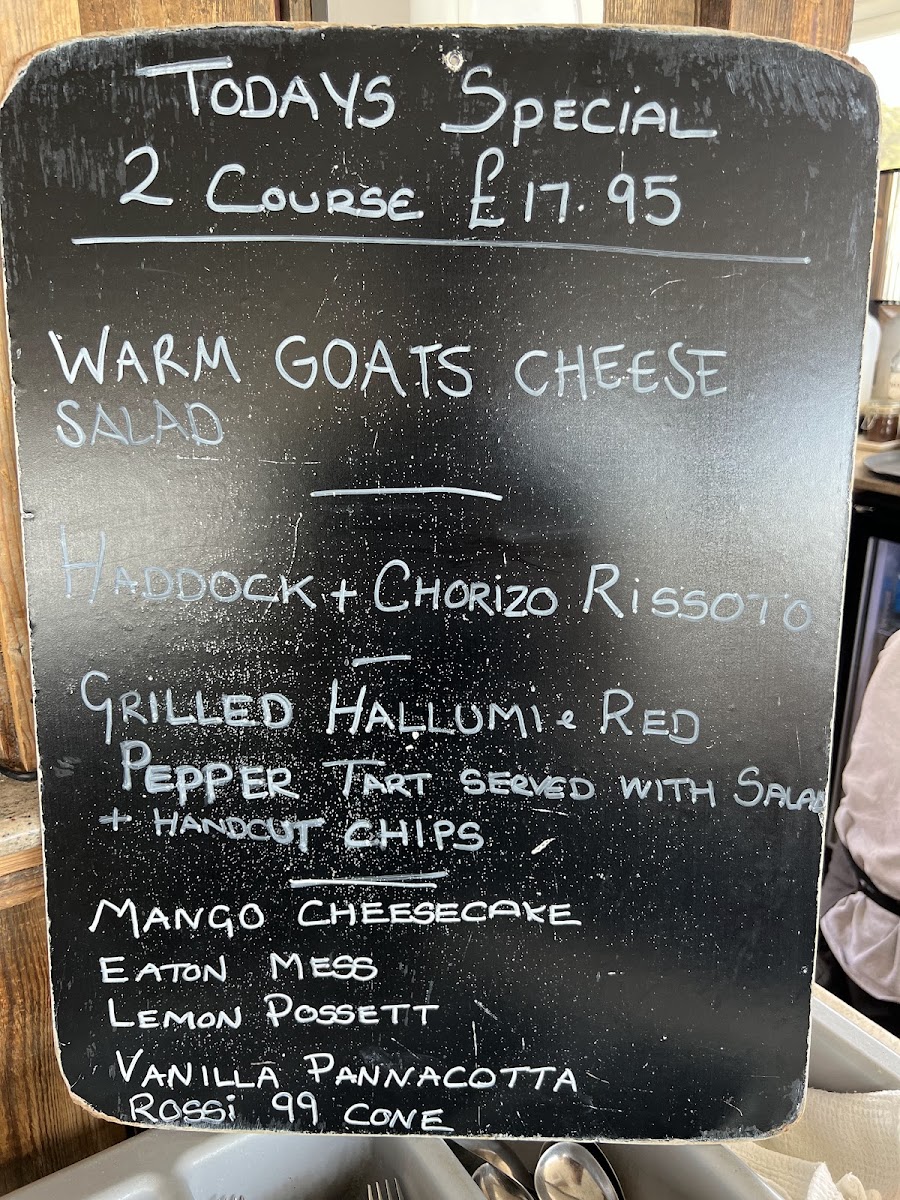 TODAYS SPECIAL
2 COURSE £17.95
WARM GOATS CHEESE
SALAD
HADDOCK + CHORIZO RISSOTO
GRILLED HALLUMI & RED
PEPPER TART SERVED WITH SALAD
+ HANDCUT CHIPS
MANGO CHEESECAKE
EATON MESS
LEMON POSSETT
VANILLA PANNACOTTA
ROSSI 99 CONE